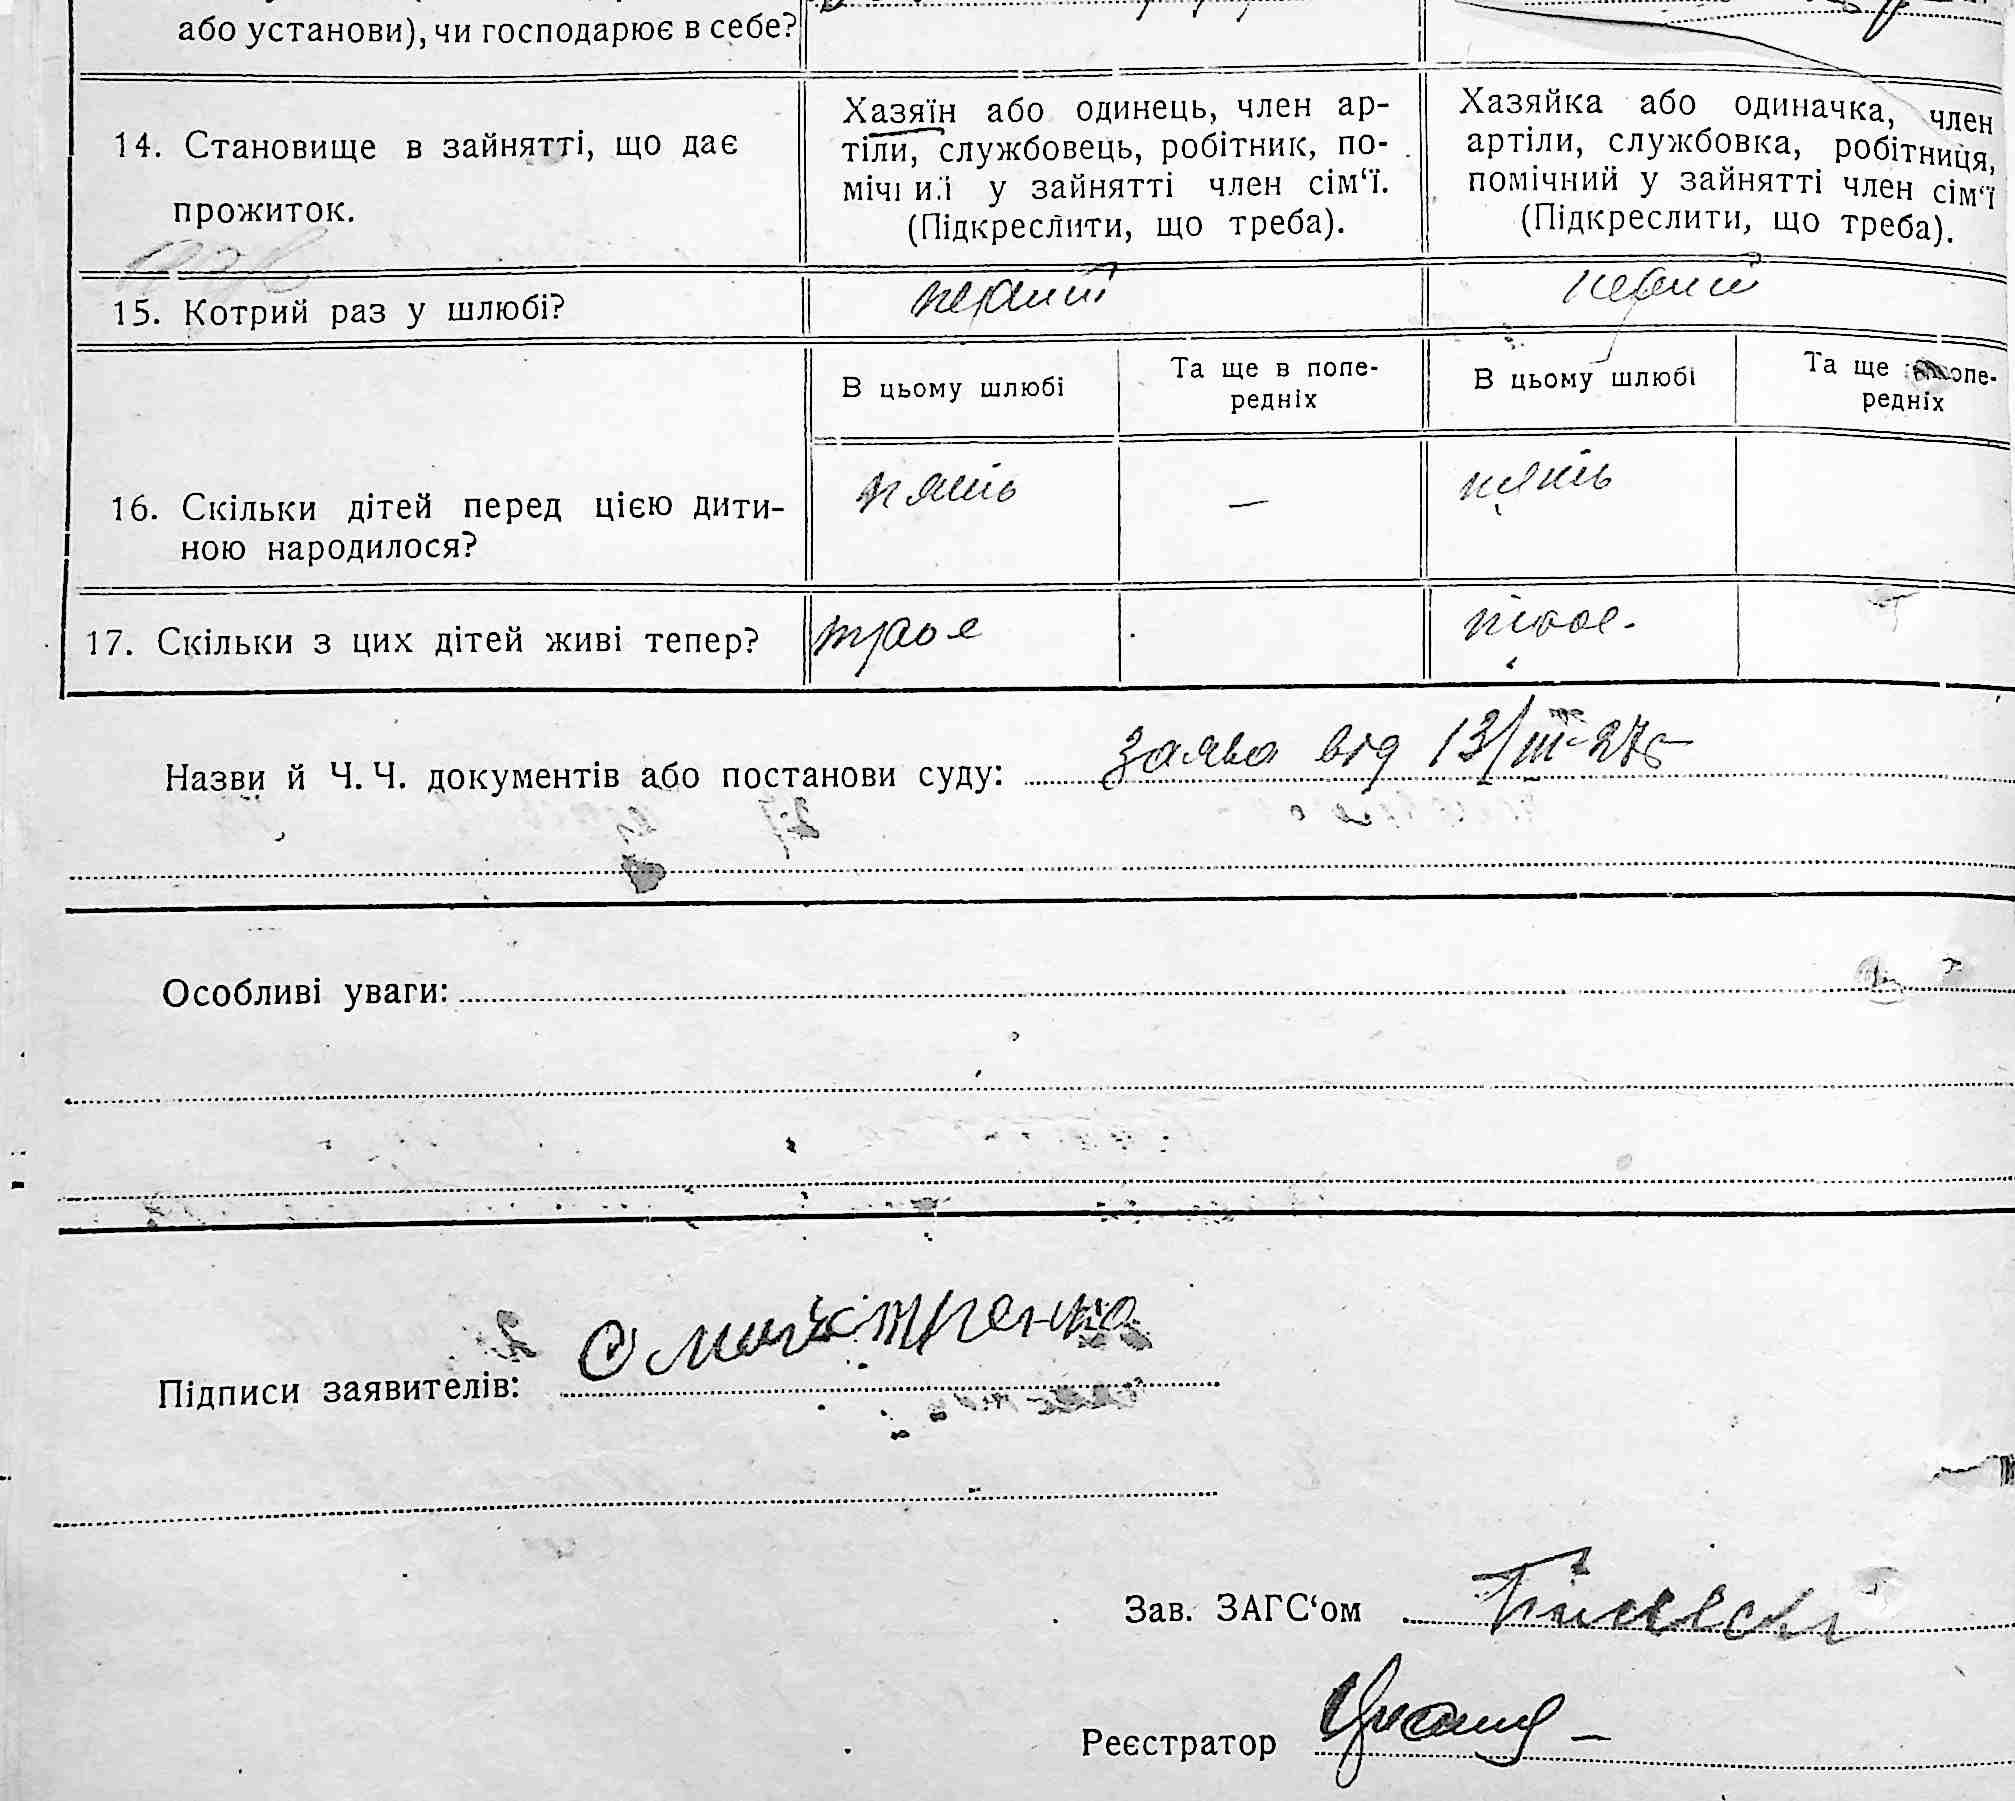 або установи), чи господарює в себе?
14. Становище в зайнятті, що дає
прожиток.
Хазяїн або одинець, член ар-
тіли, службовець, робітник, по-
мічний у зайнятті член сім‘ї.
(Підкреслити, що треба).
Хазяйка або одиначка, член
артіли, службовка, робітниця,
помічний у зайнятті член сім‘ї
(Підкреслити, що треба).
15. Котрий раз у шлюбі?
перший
перший
В цьому шлюбі
Та ще в попе-
редніх
В цьому шлюбі
Та ще в попе-
редніх
16. Скільки дітей перед цією дити-
ною народилося?
пять
—
пять
17. Скільки з цих дітей живі тепер?
трое
трое
Назви й Ч. Ч. документів або постанови суду: заява від 13/III-27
Особливі уваги:
Підписи заявителів:
Зав. ЗАГС‘ом
Реєстратор